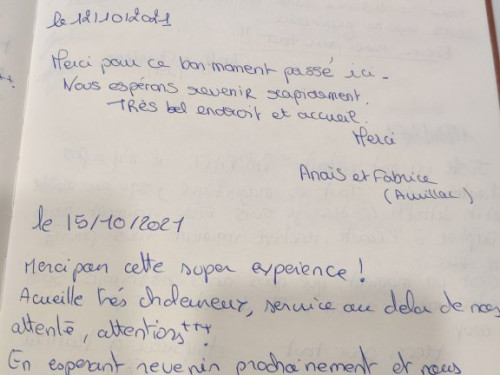 le 12/10/2021
Merci pour ce bon moment passé ici.
Nous espérons revenir rapidement.
Très bel endroit et accueil.
Merci
Anaïs et Fabrice
(Aurillac)
le 15/10/2021
Merci pour cette super experience !
Acueille trés chaleureux, service au dela de nos
attente, attentions +++ !
En esperant revenir prochainement et nous